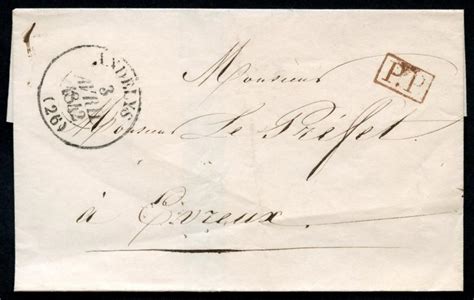 ANDELYS
3
AVRIL
1842
(26)
P.P
Monsieur
Monsieur Le Préfet
à Evreux